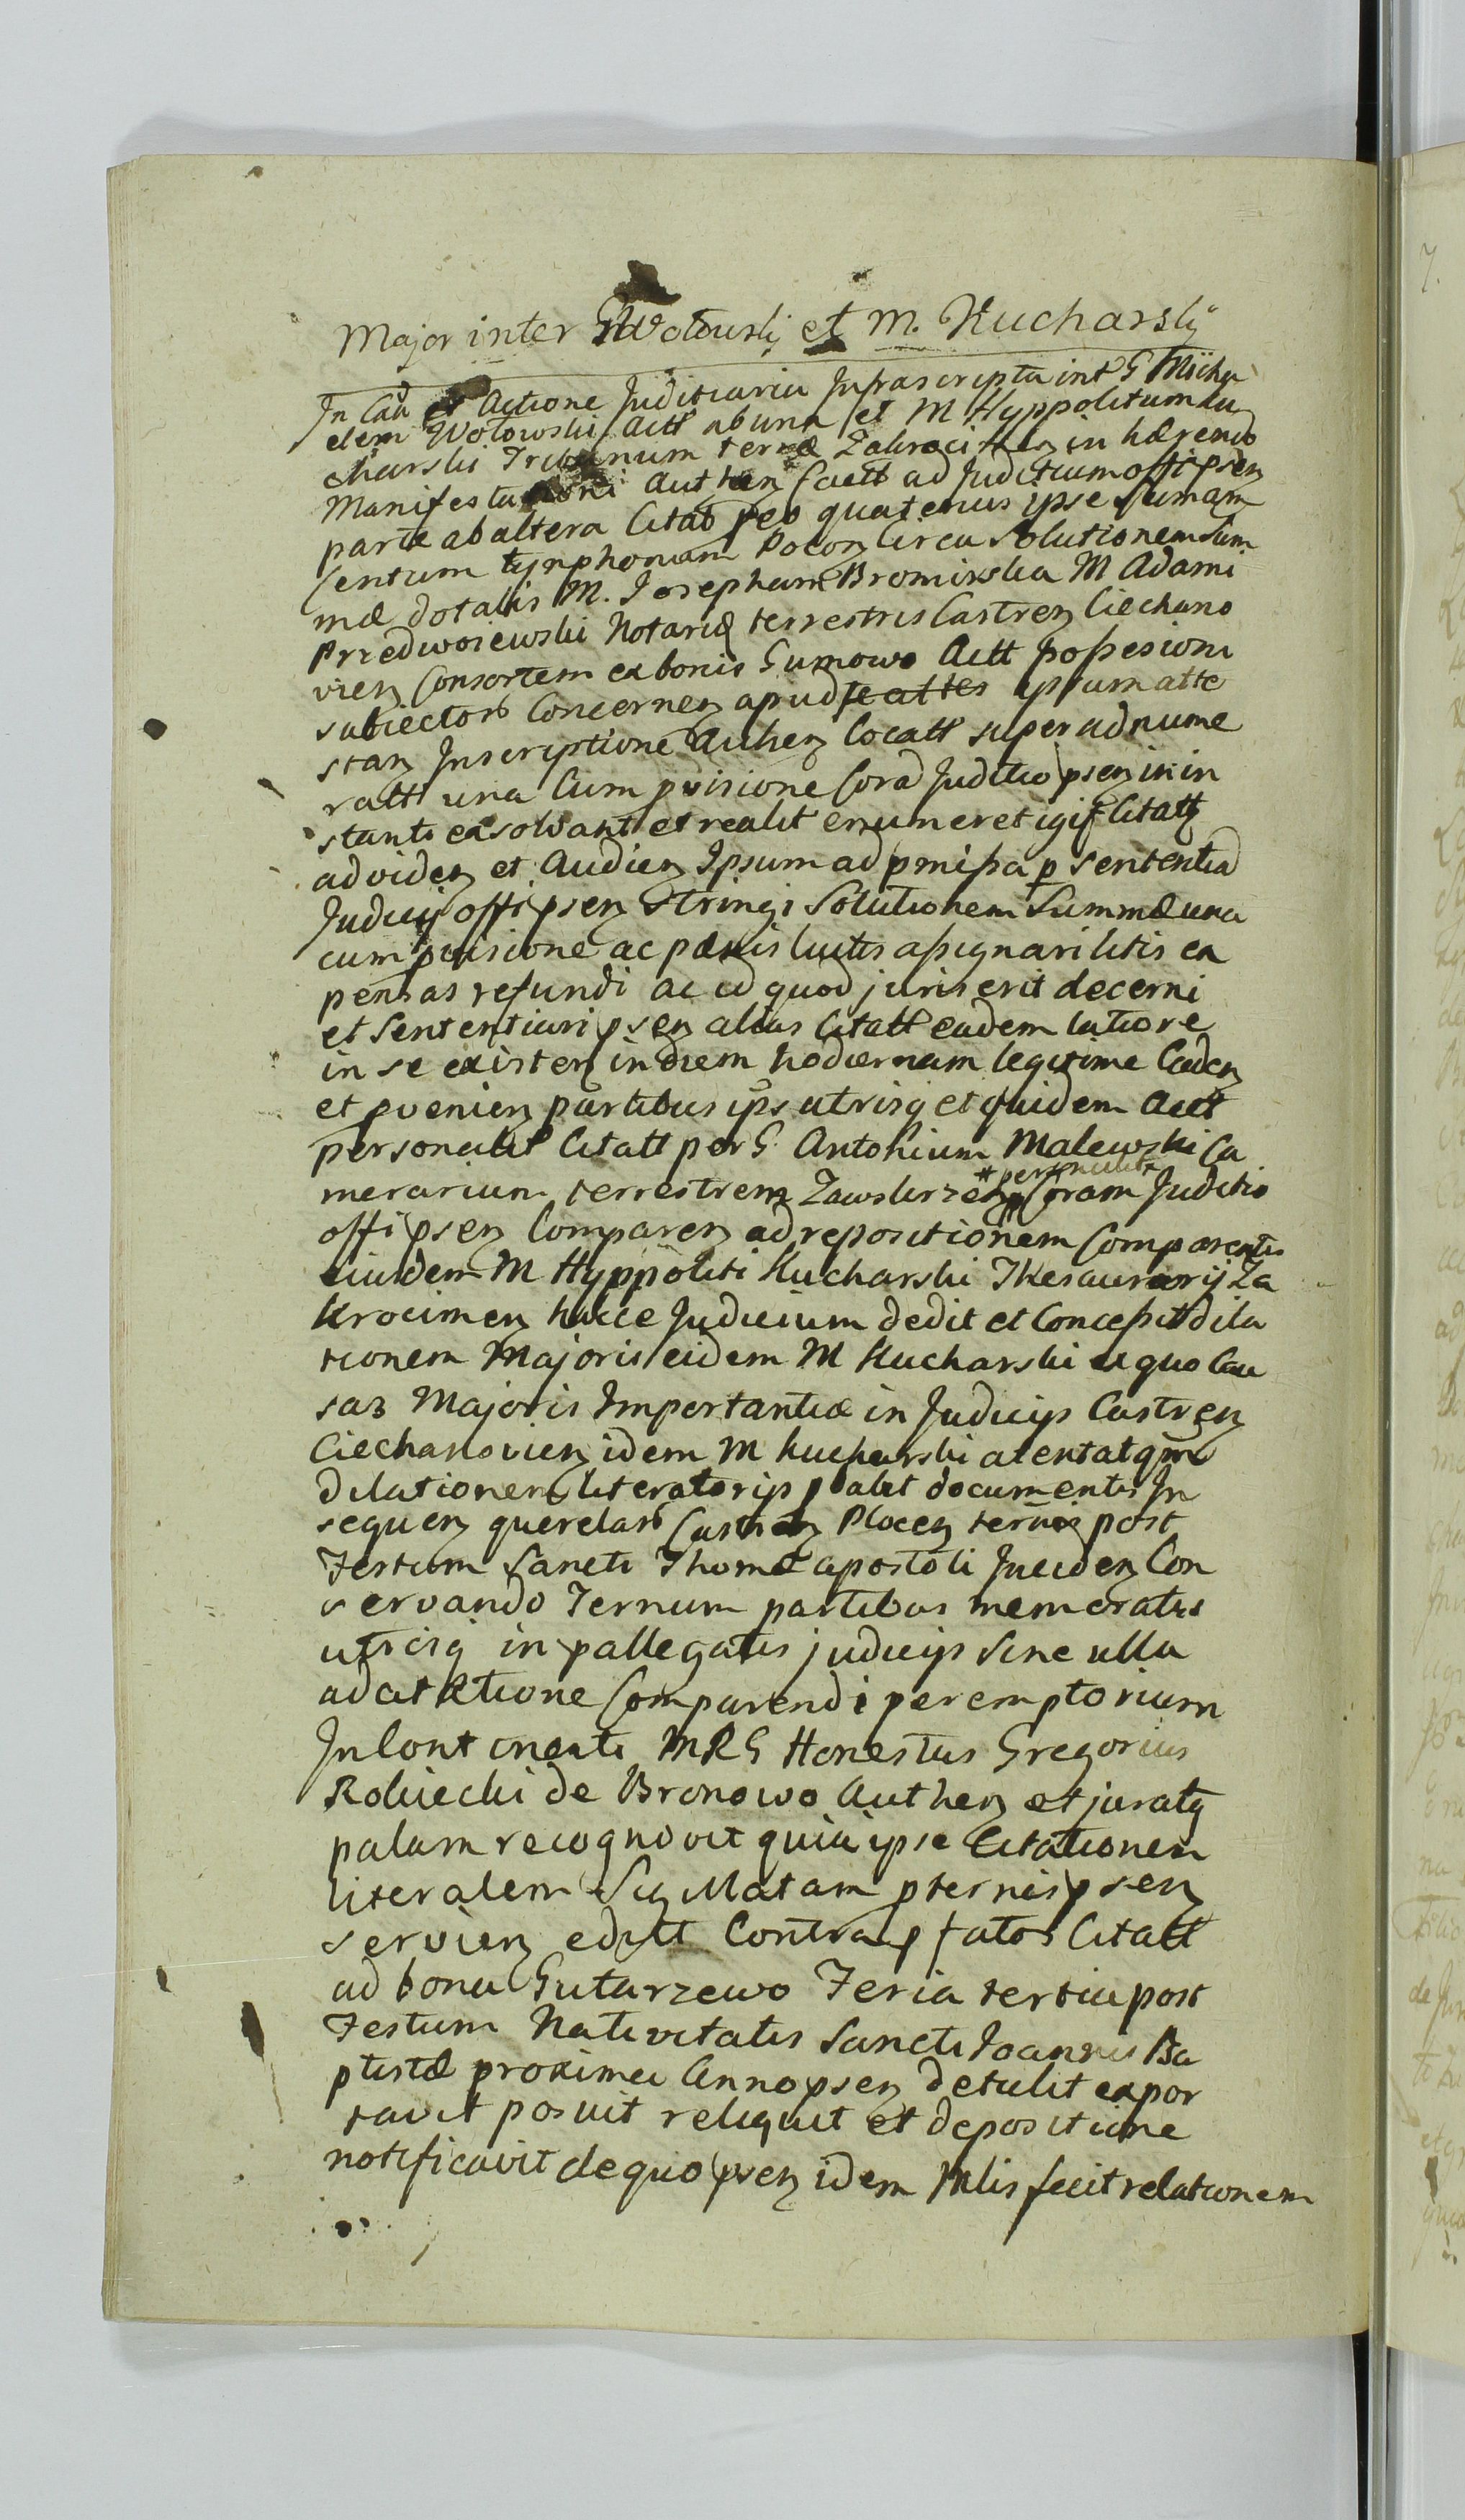 Major inter G Wołowski et M. Kucharskÿ
In Cau et Actione Juditiaria Infrascripta int G Micha
elem Wołowski Actt ab una et M Hyppolitum Ku
charski Tribunum terræ Zakroci in hærendo
Manifestationi Authen factt ad Juditium offi psen
parte ab altera Citatt eo quatenus ipse Sumam
Centum tynphonum Pocon Circa Solutionem Sum
mæ dotalis M. Josepham Bromirska M Adami
Przedwoiewski Notarii terrestris Castren Ciechano
vien Consortem ex bonis Gumowo Actt possesioni
subiectors Concernen apud ipsum atte
stan Inscriptione Authen locatt super adnume
ratt una Cum pvisione Cora Juditio psen in in
stanti exsolvant et realit enumeret igif Citatq
ad viden et Audien Ipsum ad pmissa p Sententia
Judicij offi psen Stringi Solutionem Summæ una
cum pvisione ac pænis luitis assignari litis ex
pensas refundi ac id quod juris erit decerni
et Sententiari psen alias Citatt eadem latiore
in se existen in diem hodiernam legitime Caden
et pvenien partibus ips utrisq et quidem Actt
personalit Citatt per G. Antonium Malewski Ca
merarium terrestrem Zawskrzen * personalit Coram Juditio
offi psen Comparen ad repositionem Comparentis
eiusdem M Hyppoliti Kucharski Thesaurarij Za
krocimen hocce Judicium dedit et Concessit dila
tionem Majoris eidem M Kucharski a quo Cau
sas Majoris Importantiæ in Judicijs Castren
Ciechanovien idem M Kucharski atentat qm
dilationem literatorijs pbabit documentis In
sequen querelas Castren Plocen ternis post
Festum Sancti Thomæ apostoli Inciden Con
servando Ternum partibus memoratis
utrisq in pallegatis judicijs Sine ulla
adcitatione Comparendi peremptorium
In Continenti MRG Honestus Gregorius
Rokicki de Bronowo Authen et juratq
palam recognovit quia ipse Citationem
literalem Sigillatam p ternis psen
servien editt Contra pfatos Citatt
ad bona Gutarzewo Feria tertia post
Festum Nativitatis Sancti Joannis Ba
ptistæ proxima Anno psen detulit expor
tavit posuit reliquit et depositione
notificavit de quo psen idem Mlis fecit relationem